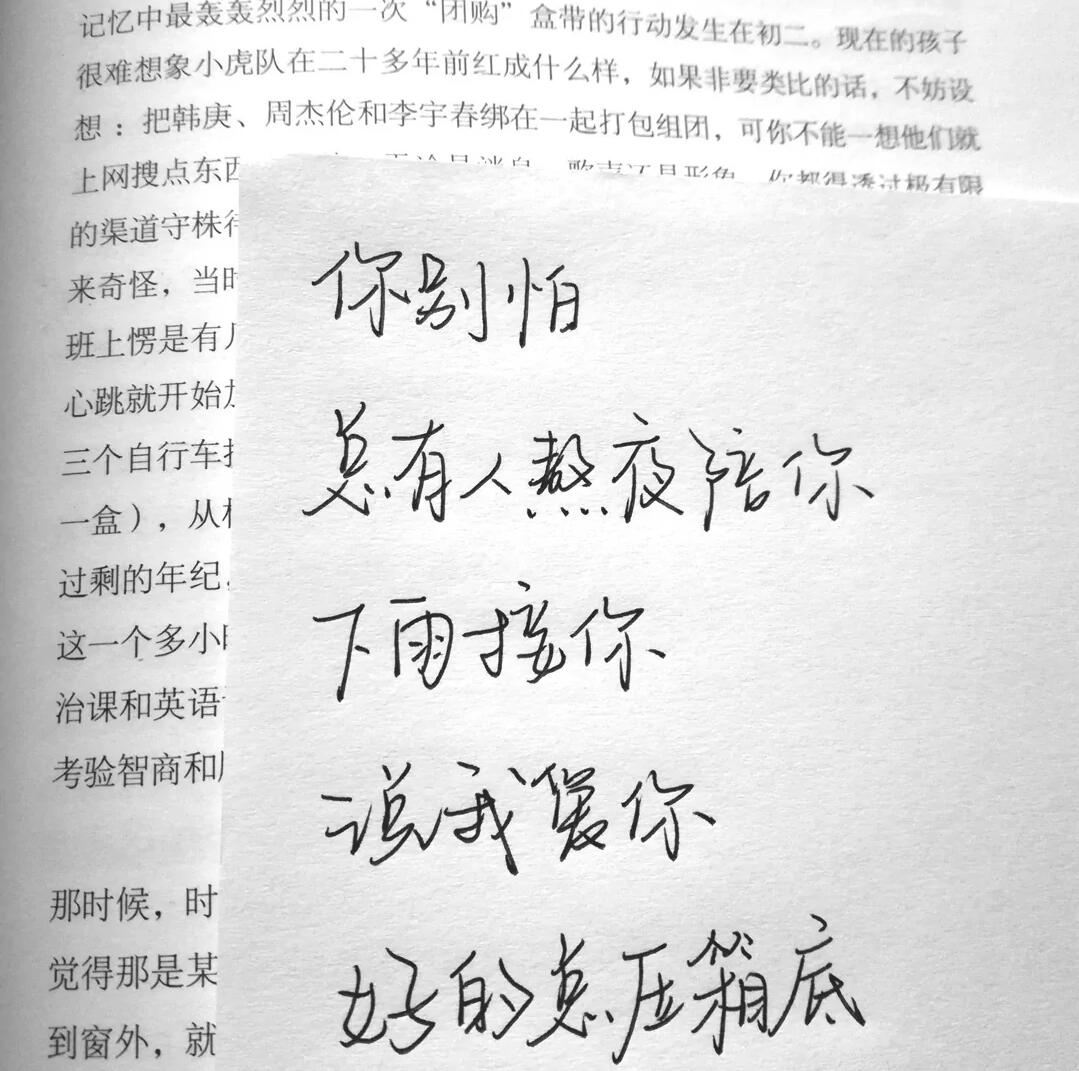 记忆中最轰轰烈烈的一次“团购”盒带的行动发生在初二。现在的孩子
很难想象小虎队在二十多年前红成什么样，如果非要类比的话，不妨设
想：把韩庚、周杰伦和李宇春绑在一起打包组团，可你不能一想他们就
上网搜点东西 无论是消息、歌声还是形象，你都得透过极有限
的渠道守株
来奇怪，当时
班上愣是有
心跳就开始
三个自行车
一盒），从
过剩的年纪，
这一个多小
治课和英语
考验智商和
那时候，时
觉得那是某
到窗外，就
你别怕
总有人熬夜陪你
下雨接你
说我爱你
好的总压箱底